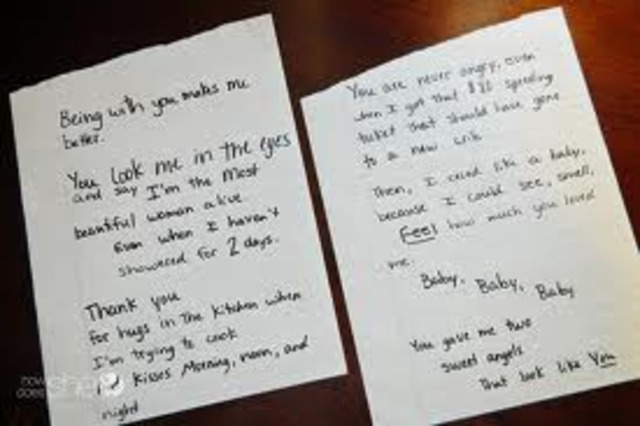 Being with you makes me
better.
You look me in the eyes
and say I'm the most
beautiful woman alive.
Even when I haven't
showered for 2 days.
Thank you
for hugs in the kitchen when
I'm trying to cook
kisses Morning, noon, and
night
You are never angry, even
when I got that speeding
ticket that should have gone
to a new crib.
Then, I cried like a baby,
because I could see, smell,
Feel how much you loved
me.
Baby, Baby, Baby
You gave me two
sweet angels
That look like You
how
does
she